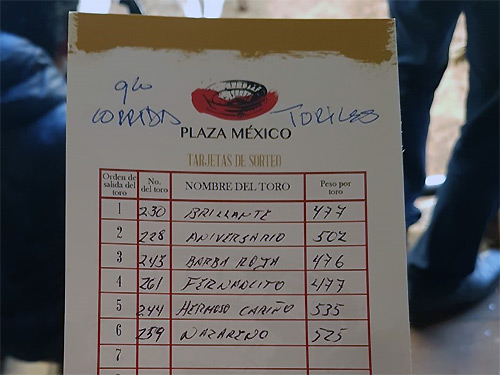 9ª
CORRIDA TORILES
PLAZA MÉXICO
TARJETAS DE SORTEO
Orden de salida del toro No. del toro NOMBRE DEL TORO Peso por toro
1 230 BRILLANTE 477
2 228 ANIVERSARIO 502
3 243 BARBA ROJA 476
4 261 FERNANCITO 477
5 244 HERMOSO CARIÑO 535
6 259 NAZARENO 525
7